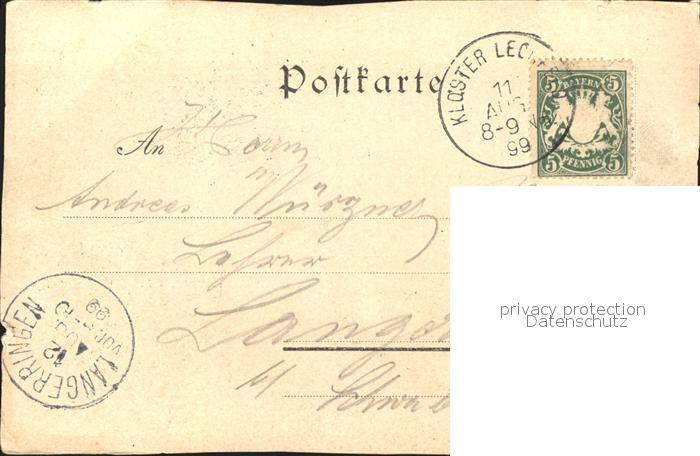 Postkarte
KLOSTER LECH
11
AUG
8-9 V
99
5 BAYERN 5
5 PFENNIG 5
An Herrn
Andreas
Lehrer
Lang
LANGERRINGEN
12
AUG
VOR
99
privacy protection
Datenschutz